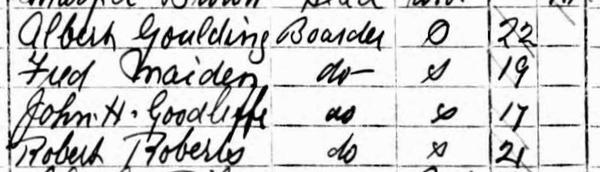 Albert Goulding Boarder S 22
Fred Maiden do S 19
John H. Goodliffe do S 17
Robert Roberts do S 21